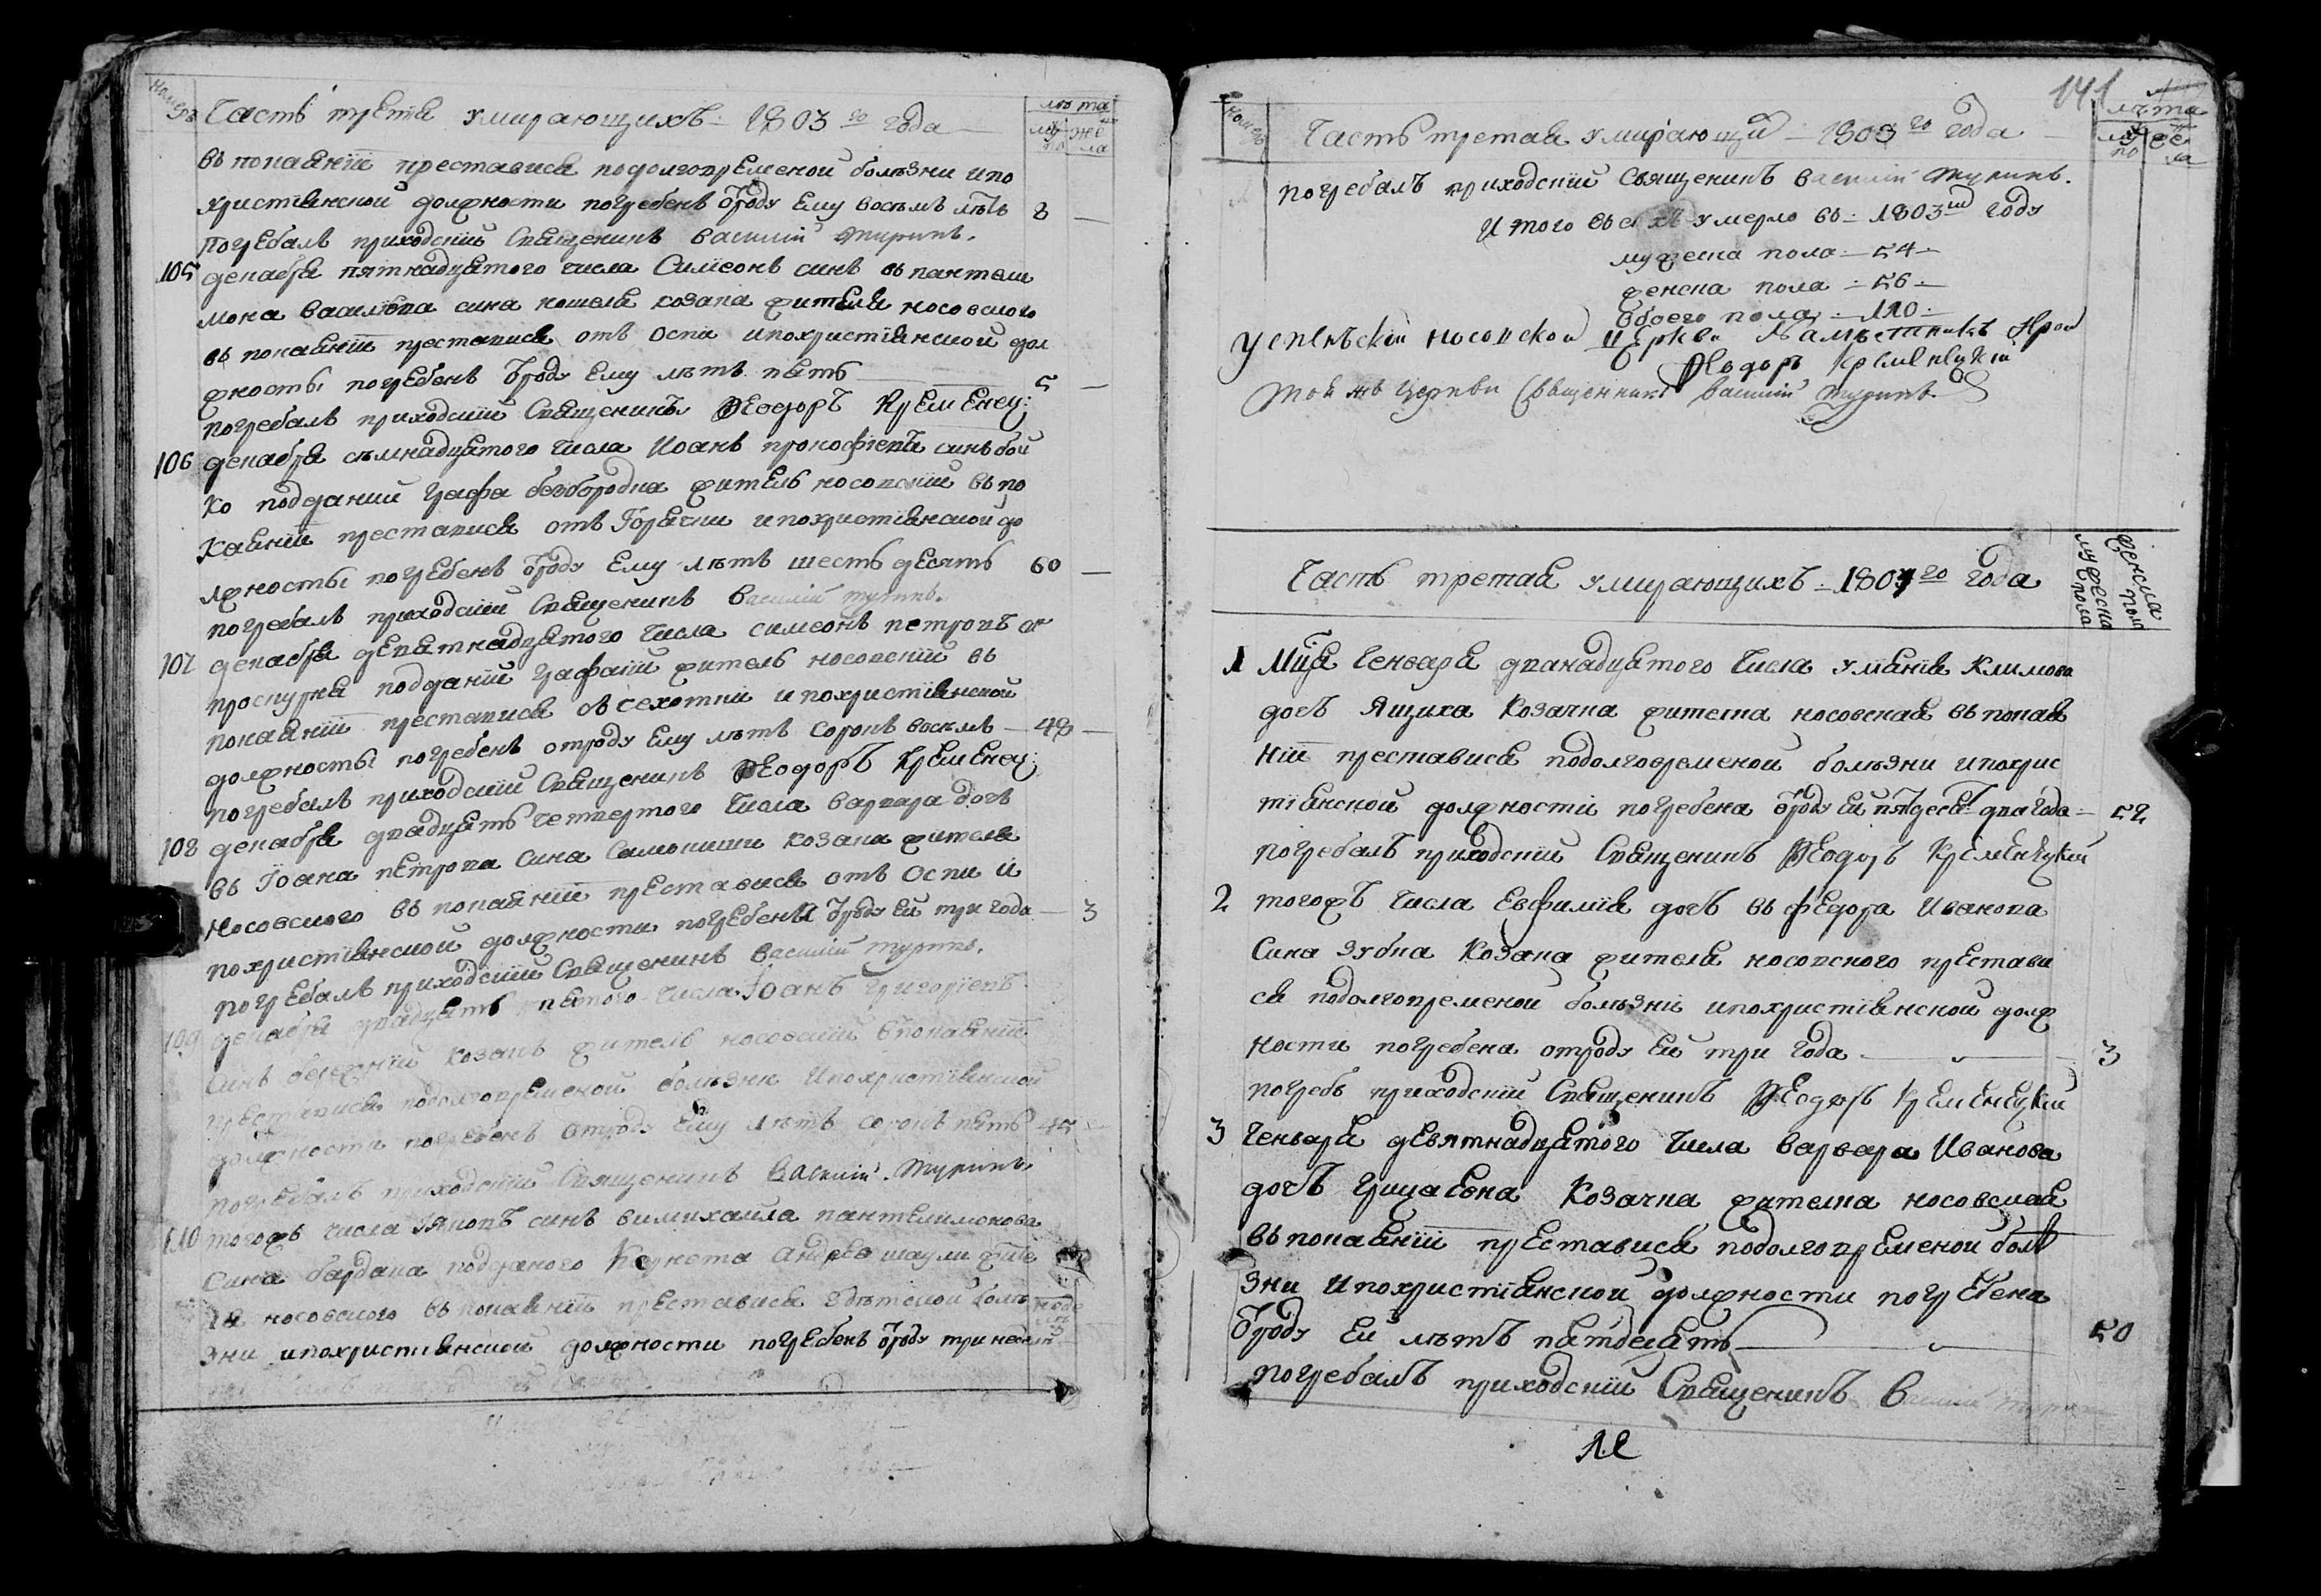 номеръ
Часть третїя умирающихъ – 1803 го года
лѣта
му по
же ла
въ покаянїи преставися подолговремѣной болѣзни ипо
христїянской должности погребенъ ѿроду Ему восѣмъ лѣтъ 8 —
погребалъ приходскїй Священикъ василїй турикъ.
105 декабря пятнадцатого числа Симеонъ синъ въ пантели
мона василѣва сина кошеля козака жителя носовского
въ покаянїи преставися отъ оспи ипохристїянской дол
жносты погребенъ ѿроду Ему лѣтъ пять — 5 —
погребалъ приходскїй Священикъ Ѳеодоръ Кременец:
106 декабря сѣмнадцатого числа Иоанъ прокофїевъ синъ бой
ко подданий графа безбородка житель носовскїй въ по
каянїи преставися отъ Горячки ипохристїянской до
лжносты погребенъ ѿроду Ему лѣтъ шесть десятъ 60 —
погребалъ приходскїй Священикъ василїй турикъ.
107 декабря девятнадцатого числа симеонъ петровъ си
проскурня подданїй графский житель носовскїй въ
покаянїи преставися ѿ сухотки ипохристїянской
должносты погребенъ отроду Ему лѣтъ сорокъ восѣмъ — 48 —
погребалъ приходскїй Священикъ Ѳеодоръ Кременец:
108 декабря двадцять четвертого числа варвара дочъ
въ Їоана петрова сина козака жителя
Носовского въ покаянїи преставися отъ оспи и
похристїянской должности погребена ѿроду Ей три года — 3
погребалъ приходскїй Священикъ василїй турикъ.
109 декабря двадцять пятого числа Їоанъ Григорїевъ
синъ козакъ житель носовскїй впокаянїи
преставися подолговремѣной болѣзни ипохристїянской
должности погребенъ отроду Ему лѣтъ сорокъ пять 45 —
погребалъ приходскїй Священикъ Василїй Турикъ.
110 тогожъ числа Їяковъ синъ вимихаила пантелимонова
сина бардака подданого Корнета андрея шаули жите
ля носовского въ покаянїи преставися ѿдѣтской болѣ
зни ипохристиянской должности погребенъ ѿроду три недѣлѣ
141
номеръ
Часть третая умирающи – 1803 го года
лѣта
му по
же ла
погребалъ приходскїй Священикъ василїй турикъ.
Итого всѣхъ умерло въ – 1803 м году
мужеска пола – 54 –
женска пола – 56 –
обоего пола – 110 –
Успенъской носовской Церкви Намѣстникъ Крои
Ѳеодоръ Кременецкїй
той жъ церкви Священникъ василїй турикъ.
Часть третая умирающихъ – 1804 го года
мужеска пола
женска пола
1 Мца Генваря дванадцатого числа умянїя Климова
дочъ Ящиха Козачка жителка носовская въ покая
нїи преставися подолговременой болѣзни ипохрис
тїанской должностї погребена ѿроду Ей пядеся два года – 52
погребалъ приходскїй Священикъ Ѳеодоръ Кременецкїй
2 тогожъ числа Евфимїя дочъ въ федора Иванова
Сина зубка Козака жителя носовского престави
ся подолговременой болѣзни ипохристїянской долж
ности погребена отроду Ей три года — 3
погребъ приходскїй Священикъ Ѳеодоръ Кременецкїй
3 Генваря девятнадцатого числа варвара Иванова
дочъ грицаевна Козачка жителка носовская
въ покаянїи преставися подолговременой болѣ
зни ипохристїянской должности погребена
ѿроду Ей лѣтъ пятдесятъ — 50
погребалъ приходскїй Священикъ Василїй турикъ